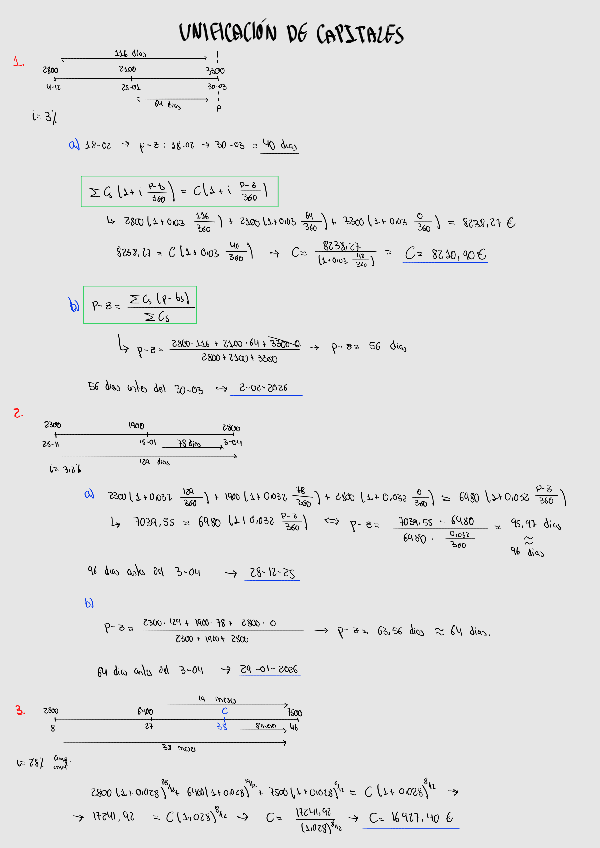 UNIFICACIÓN DE CAPITALES
1.
116 días
2800 2100 3300
4-12 25-01 30-03
64 días P
i = 3%
a) 18-02 → p-z : 18-02 → 30-03 = 40 días
Σ Cs (1 + i p-ts/360) = C (1 + i p-z/360)
↳ 2800 (1 + 0,03 116/360) + 2100 (1 + 0,03 64/360) + 3300 (1 + 0,03 0/360) = 8238,27 €
8238,27 = C (1 + 0,03 40/360) → C = 8238,27/(1+0,03 40/360) = C = 8210,90 €
b) p-z = Σ Cs (p-ts)/Σ Cs
↳ p-z = 2800·116 + 2100·64 + 3300·0/2800 + 2100 + 3300 → p-z = 56 días
56 días antes del 30-03 → 2-02-2026
2.
2300 1900 2800
25-11 15-01 78 días 3-04
129 días
i = 3,2%
a) 2300 (1 + 0,032 129/360) + 1900 (1 + 0,032 78/360) + 2800 (1 + 0,032 0/360) = 6980 (1 + 0,032 p-z/360)
↳ 7039,55 = 6980 (1 + 0,032 p-z/360) ⇔ p-z = 7039,55 - 6980/6980 · 0,032/360 = 95,97 días
≈
96 días
96 días antes del 3-04 → 28-12-25
b)
p-z = 2300·129 + 1900·78 + 2800·0/2300 + 1900 + 2800 → p-z = 63,56 días ≈ 64 días.
64 días antes del 3-04 → 29-01-2026
3.
19 meses
2800 6400 C 7500
8 27 38 8 meses 46
38 meses
i = 2,8%
2800 (1+0,028)^38/12 + 6400 (1+0,028)^19/12 + 7500 (1+0,028)^0/12 = C (1+0,028)^8/12 →
→ 17241,92 = C (1,028)^8/12 → C = 17241,92/(1,028)^8/12 → C = 16927,40 €